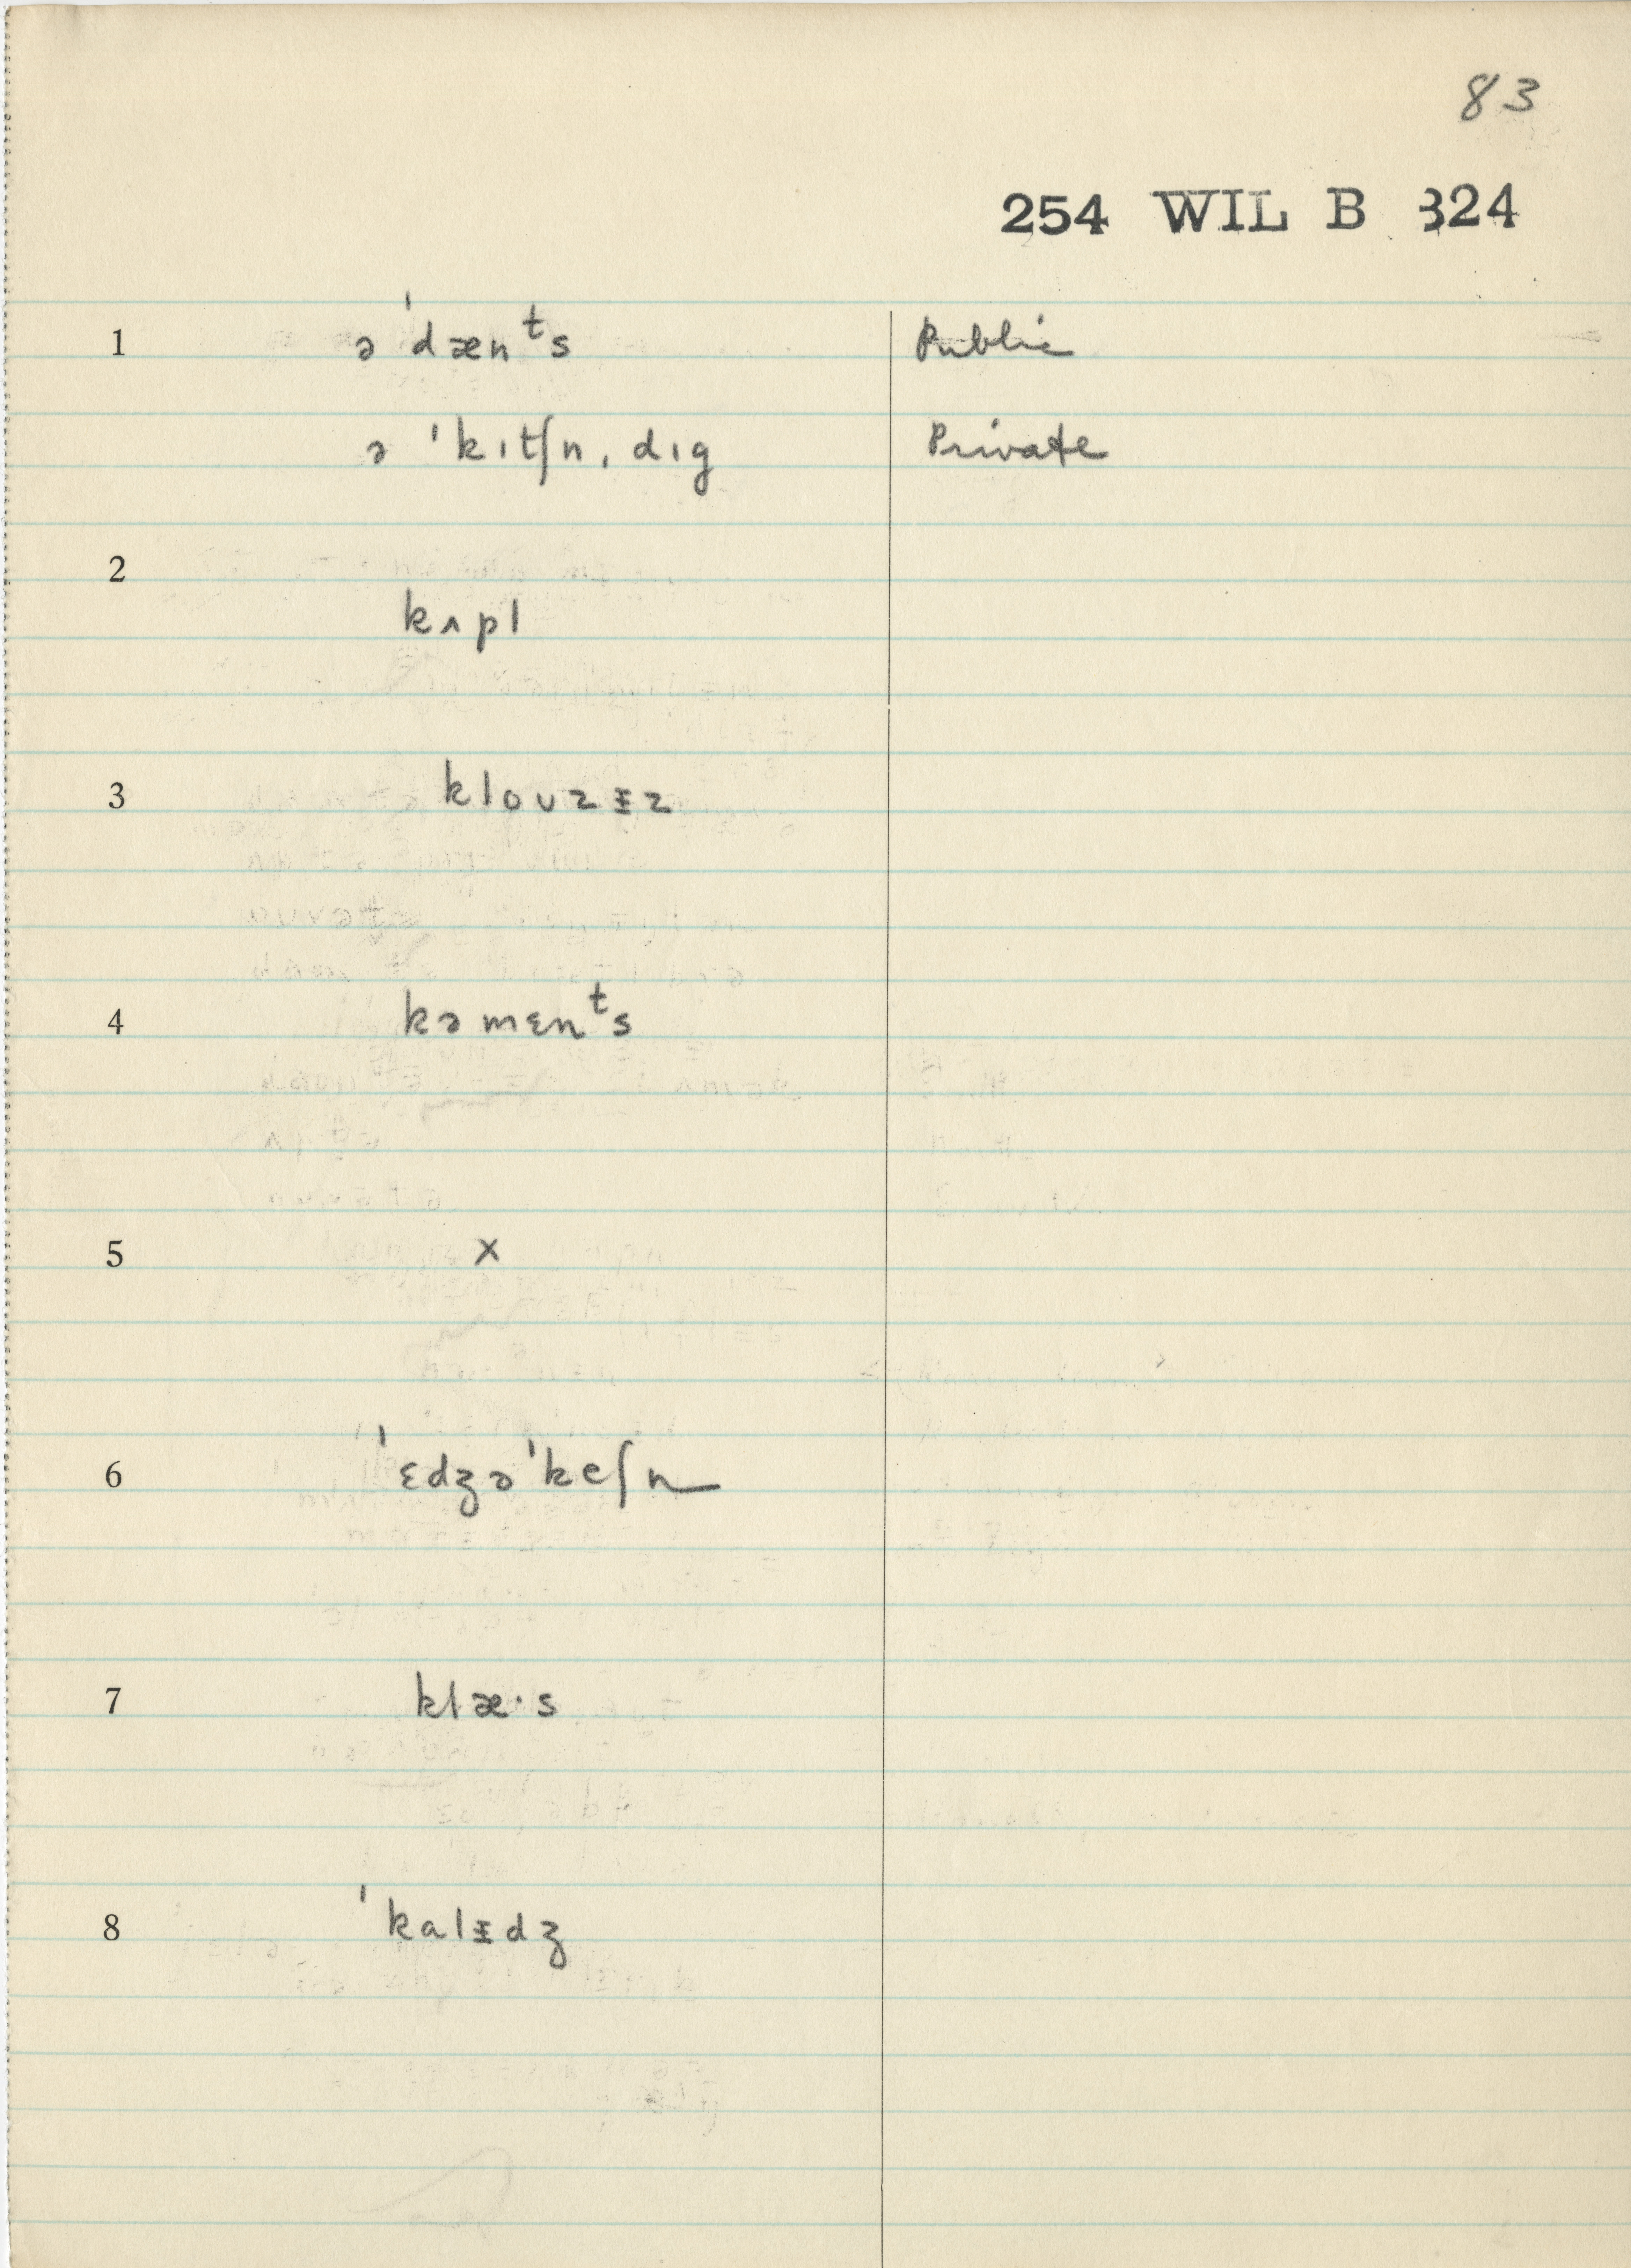 83
254 WIL B 324
1 ə ˈdænᵗs Public
ə ˈkɪtʃn, dɪg Private
2
kʌpl
3 kloʊzᵻz
4 kəmɛnᵗs
5 x
6 ˈɛdʒəˈkeʃn
7 klæ·s
8 ˈkalᵻdʒ